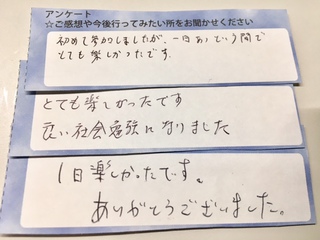 アンケート
☆ご感想や今後行ってみたい所をお聞かせください
初めて参加しましたが、一日あっという間で
とても楽しかったです。
とても楽しかったです
良い社会勉強になりました
1日楽しかったです。
ありがとうございました。